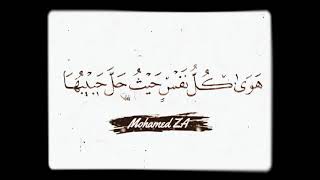 هَوَىٰ كُلُّ نَفْسٍ حَيْثُ حَلَّ حَبِيْبُهَا
Mohamed ZA